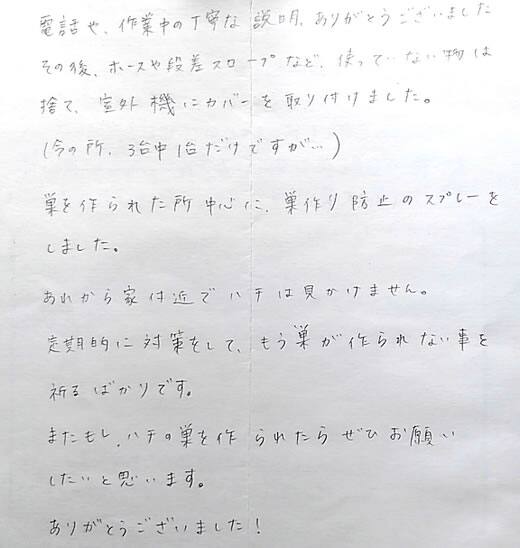 電話や、作業中の丁寧な説明、ありがとうございました
その後、ホースや段差スロープなど、使っていない物は
捨て、室外機にカバーを取り付けました。
(今の所、3台中1台だけですが…)
巣を作られた所中心に、巣作り防止のスプレーを
しました。
あれから家付近でハチは見かけません。
定期的に対策をして、もう巣が作られない事を
祈るばかりです。
またもし、ハチの巣を作られたらぜひお願い
したいと思います。
ありがとうございました!